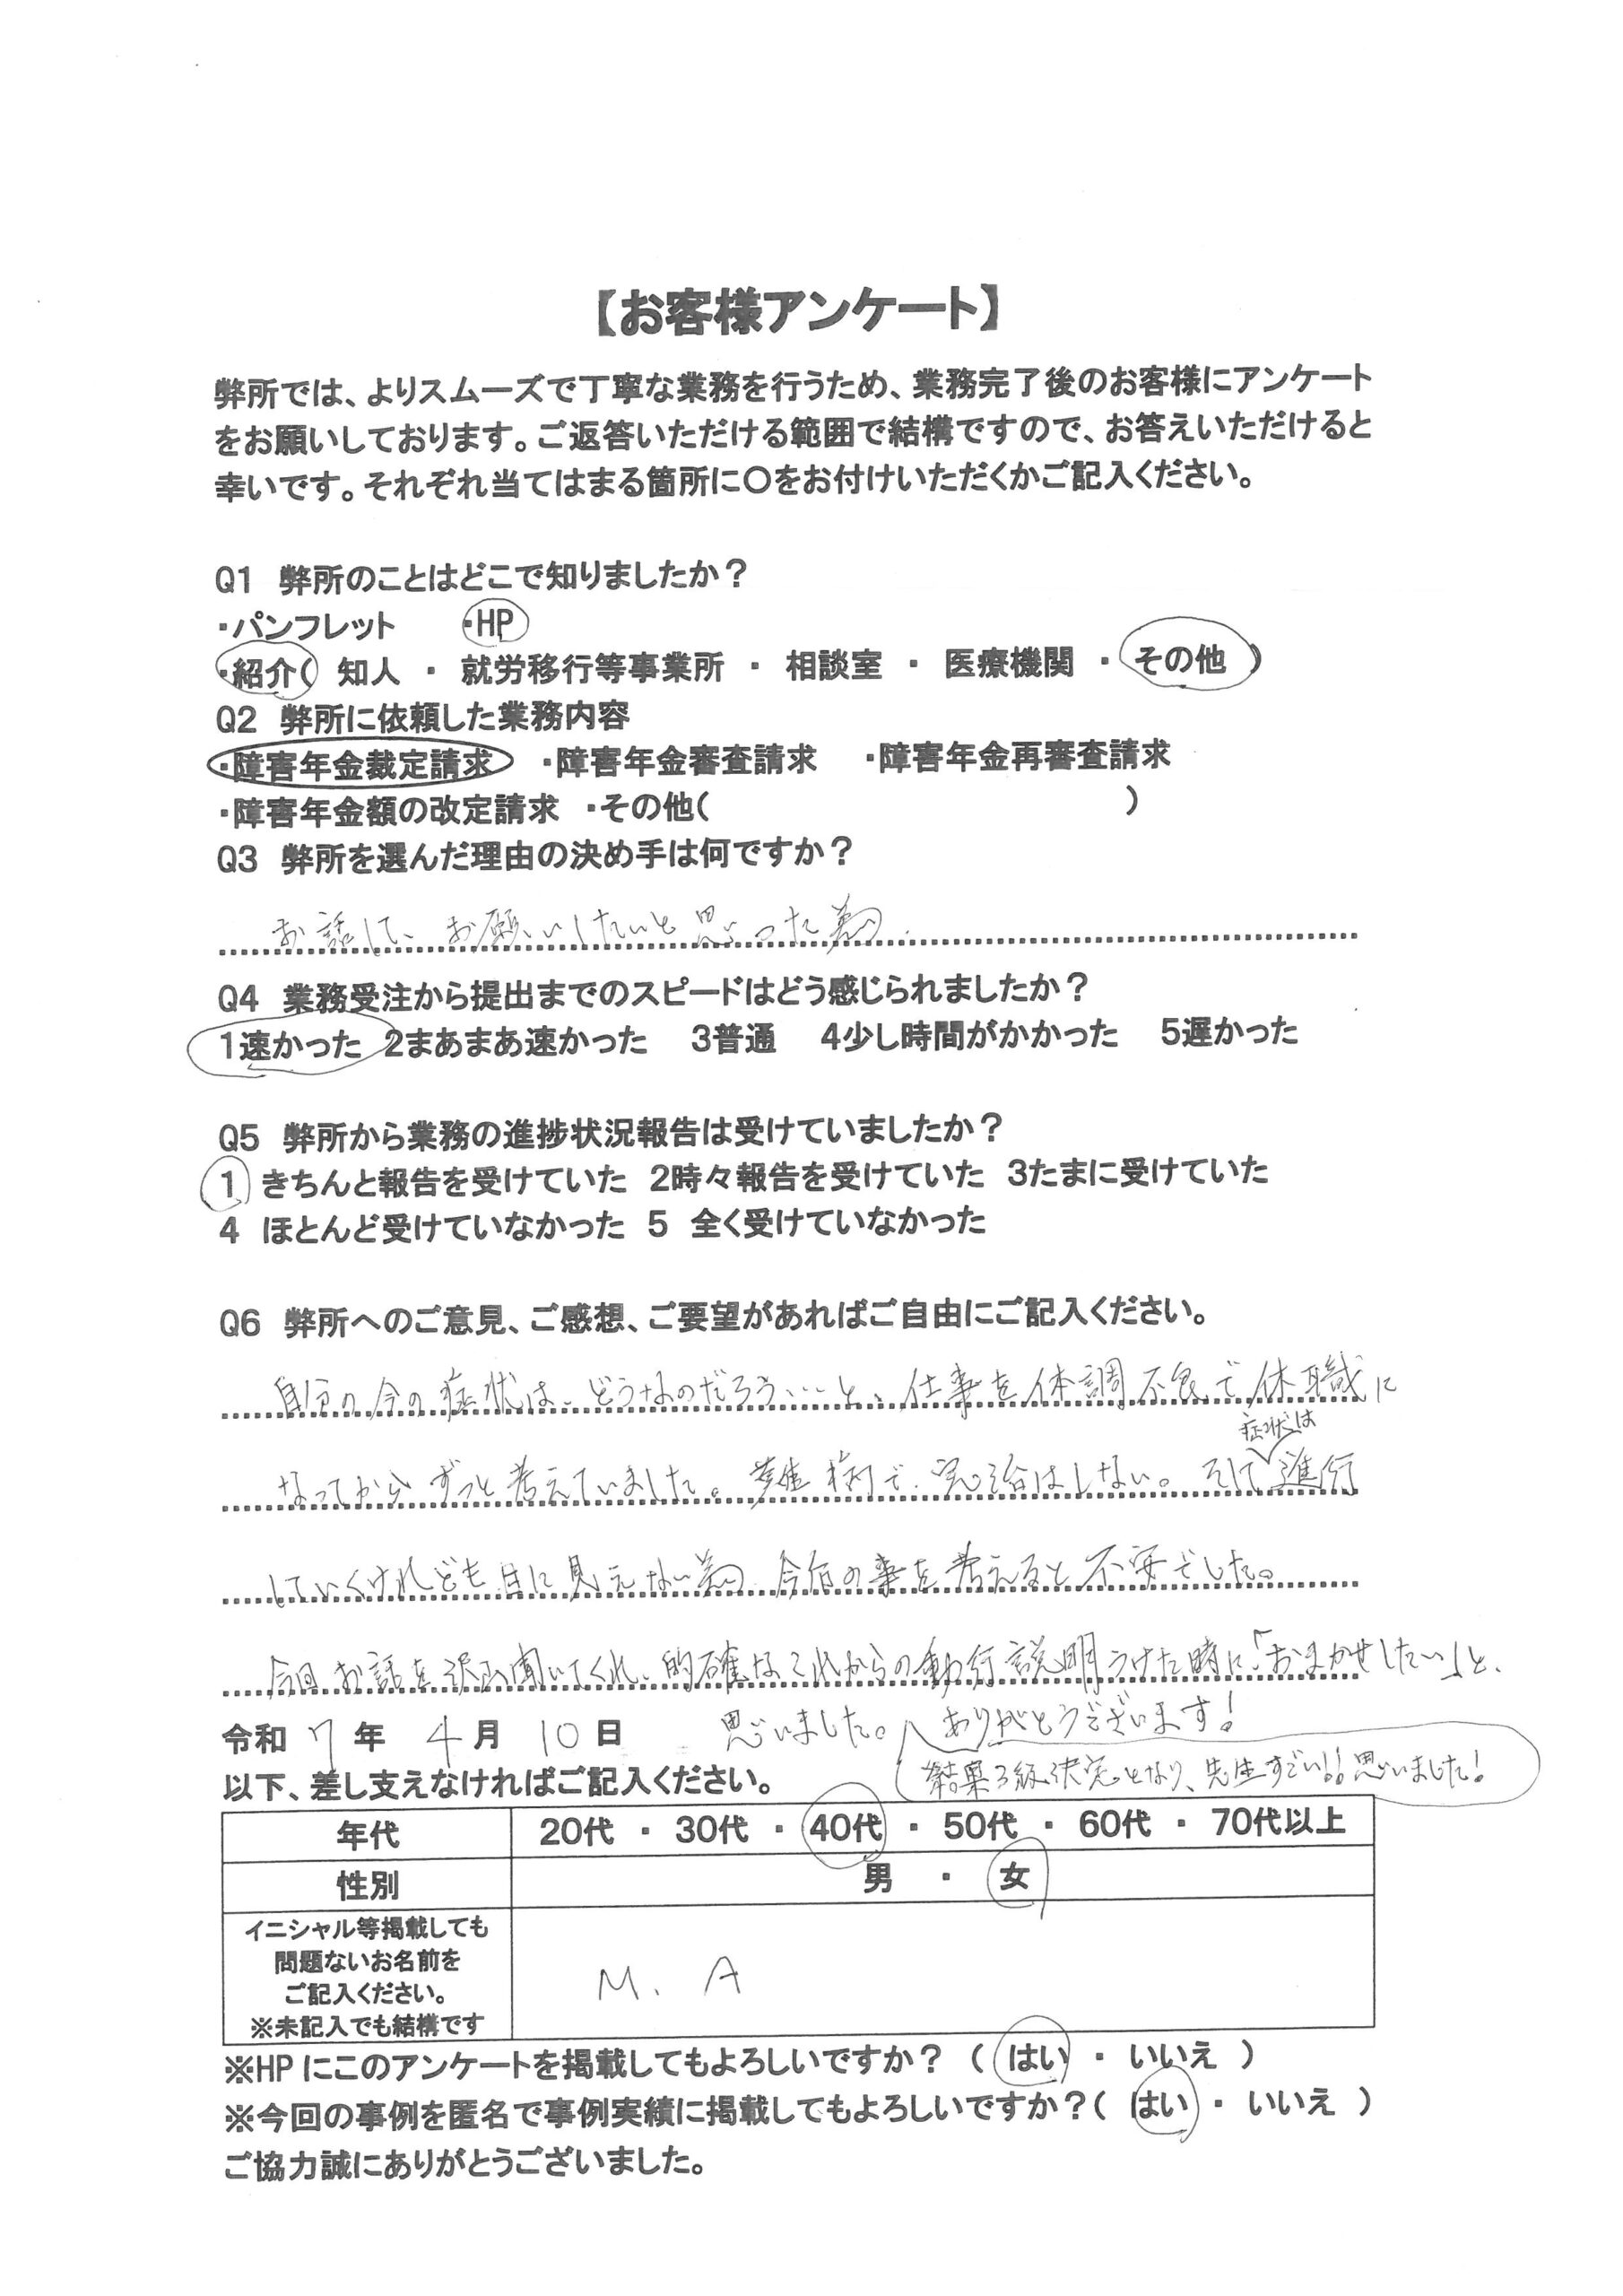 【お客様アンケート】
弊所では、よりスムーズで丁寧な業務を行うため、業務完了後のお客様にアンケート
をお願いしております。ご返答いただける範囲で結構ですので、お答えいただけると
幸いです。それぞれ当てはまる箇所に〇をお付けいただくかご記入ください。
Q1 弊所のことはどこで知りましたか？
・パンフレット ・HP
・紹介( 知人 ・ 就労移行等事業所 ・ 相談室 ・ 医療機関 ・ その他 )
Q2 弊所に依頼した業務内容
・障害年金裁定請求 ・障害年金審査請求 ・障害年金再審査請求
・障害年金額の改定請求 ・その他( )
Q3 弊所を選んだ理由の決め手は何ですか？
お話して、お願いしたいと思った為。
Q4 業務受注から提出までのスピードはどう感じられましたか？
1速かった 2まあまあ速かった 3普通 4少し時間がかかった 5遅かった
Q5 弊所から業務の進捗状況報告は受けていましたか？
1 きちんと報告を受けていた 2時々報告を受けていた 3たまに受けていた
4 ほとんど受けていなかった 5 全く受けていなかった
Q6 弊所へのご意見、ご感想、ご要望があればご自由にご記入ください。
自分の今の症状は、どうなのだろう…と、仕事を体調不良で休職に
症状は
なってからずっと考えていました。難病で、完治はしない。そして進行
していくけれども目に見えない為、今后の事を考えると不安でした。
今回お話を沢山聞いてくれ、的確なこれからの動行説明うけた時に「おまかせしたい」と、
思いました。ありがとうございます！
令和 7 年 4 月 10 日
結果3級決定となり、先生すごい!!思いました！
以下、差し支えなければご記入ください。
年代 20代 ・ 30代 ・ 40代 ・ 50代 ・ 60代 ・ 70代以上
性別 男 ・ 女
イニシャル等掲載しても
問題ないお名前を
ご記入ください。
※未記入でも結構です
M. A
※HPにこのアンケートを掲載してもよろしいですか？ ( はい ・ いいえ )
※今回の事例を匿名で事例実績に掲載してもよろしいですか？( はい ・ いいえ )
ご協力誠にありがとうございました。